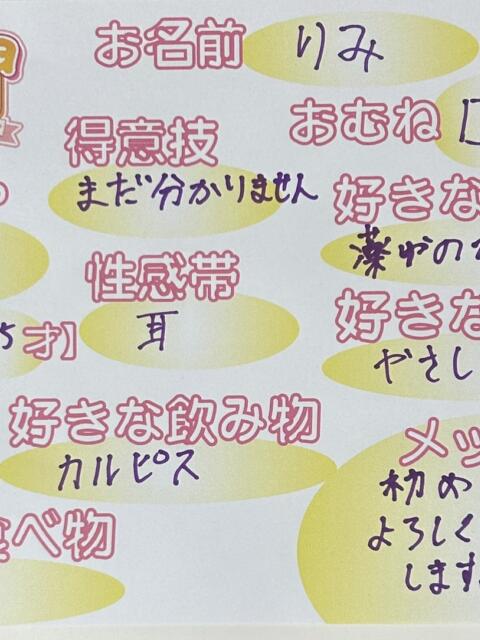 お名前 りみ
得意技
おむね
まだ分かりません
好きな
薬やの
性感帯
耳
好きな
5才】
やさし
好きな飲み物
カルピス
メッ
初め
よろしく
します
べ物